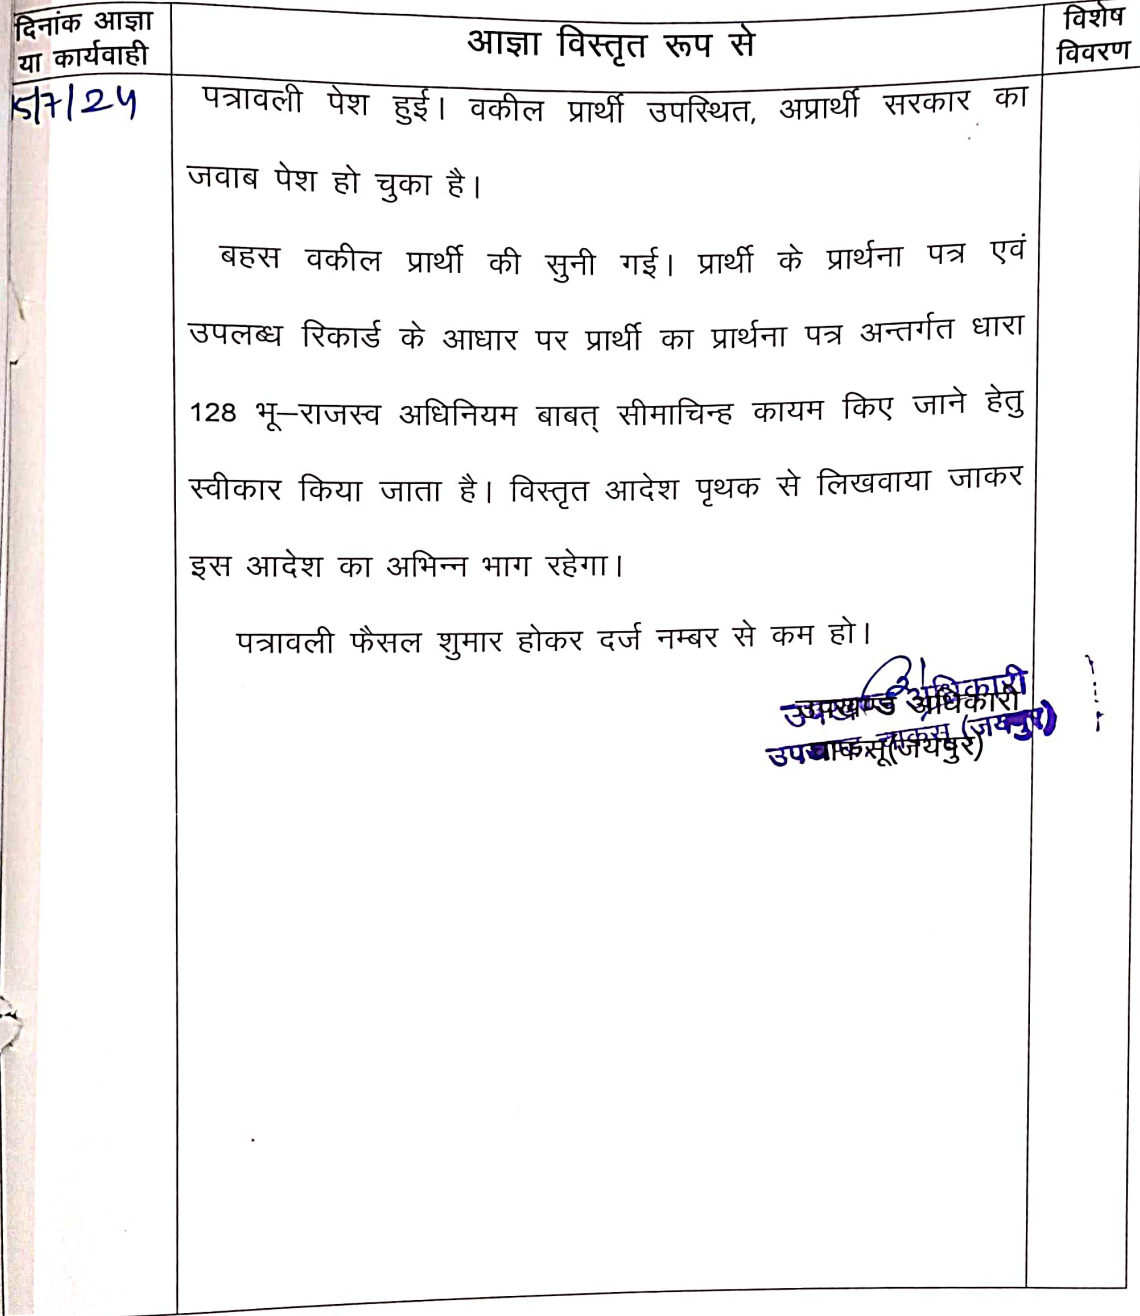 दिनांक आज्ञा
या कार्यवाही
आज्ञा विस्तृत रूप से
विशेष
विवरण
5/7/24
पत्रावली पेश हुई। वकील प्रार्थी उपस्थित, अप्रार्थी सरकार का
जवाब पेश हो चुका है।
बहस वकील प्रार्थी की सुनी गई। प्रार्थी के प्रार्थना पत्र एवं
उपलब्ध रिकार्ड के आधार पर प्रार्थी का प्रार्थना पत्र अन्तर्गत धारा
128 भू–राजस्व अधिनियम बाबत् सीमाचिन्ह कायम किए जाने हेतु
स्वीकार किया जाता है। विस्तृत आदेश पृथक से लिखवाया जाकर
इस आदेश का अभिन्न भाग रहेगा।
पत्रावली फैसल शुमार होकर दर्ज नम्बर से कम हो।
उपखण्ड अधिकारी
उपखण्ड अधिकारी
चाकसू (जयपुर)
चाकसू(जयपुर)